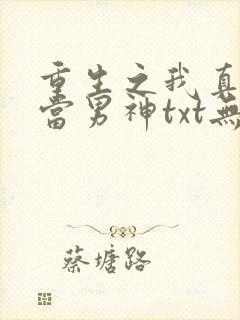 重生之我真
當男神txt無
蔡塘路